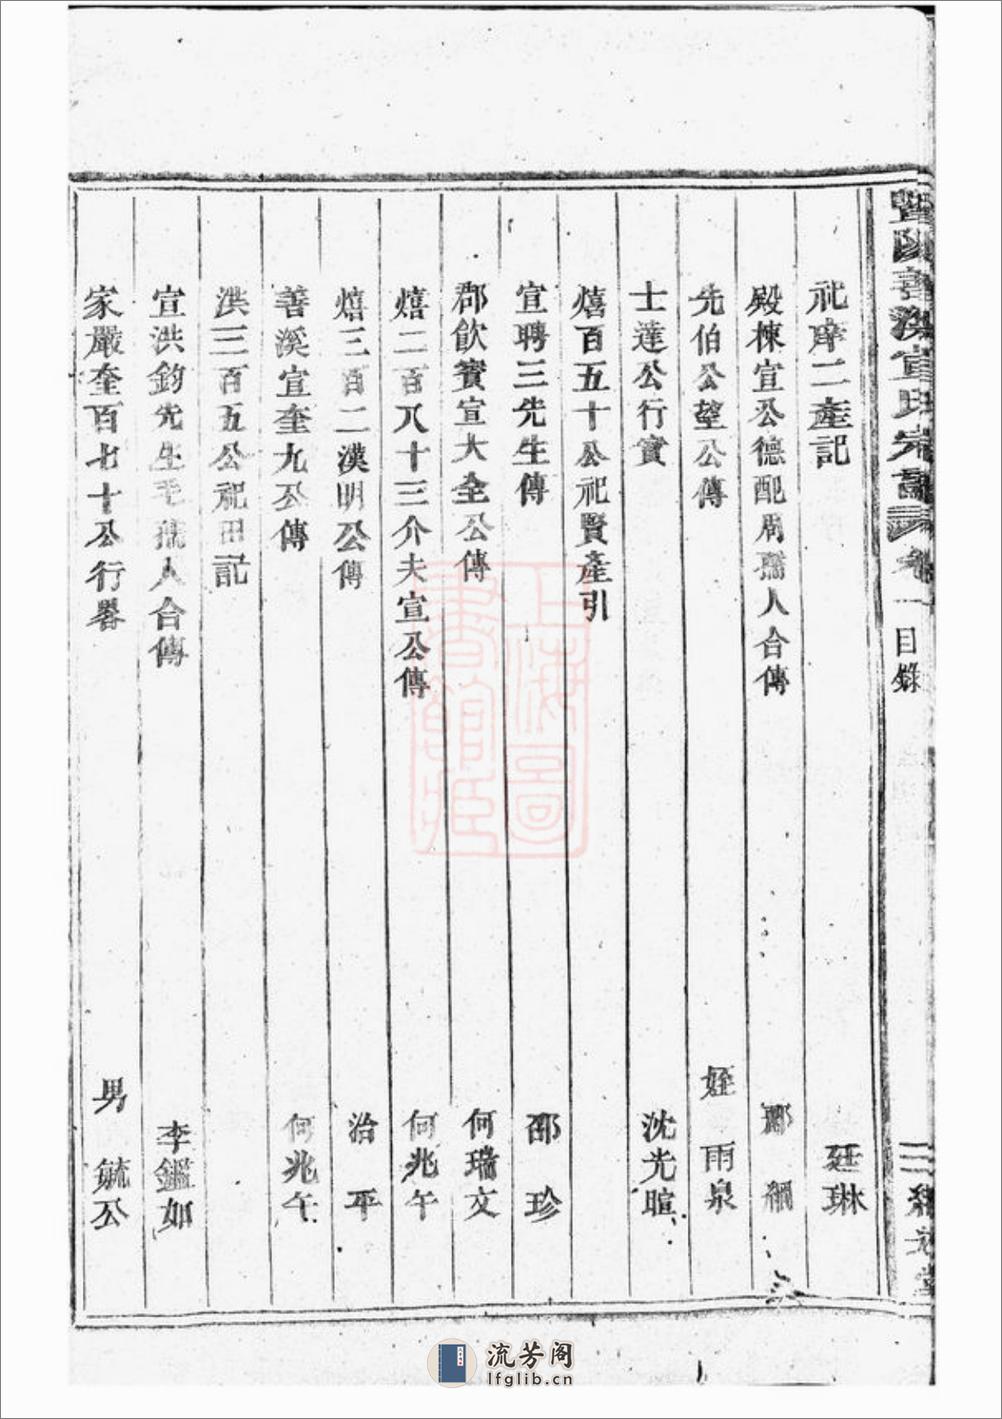 暨陽善溪宣氏宗譜 卷一 目錄 三
祀產二產記 廷琳
殿棟宣公德配周孺人合傳 酈綱
先伯公望公傳 姪 雨泉
士達公行實 沈光暄
熺百五十公祀賢產引
宣聘三先生傳 邵珍
郡飲賓宣大全公傳 何瑞文
熺二百八十三介夫宣公傳 何兆午
熺三百二漢明公傳 治平
善溪宣奎九公傳 何兆午
洪三百五公祀田記
宣洪鈞先生毛孺人合傳 李鑑如
家嚴奎百七十公行畧 男 毓公
上海圖書館藏
流芳阁
lfglib.cn